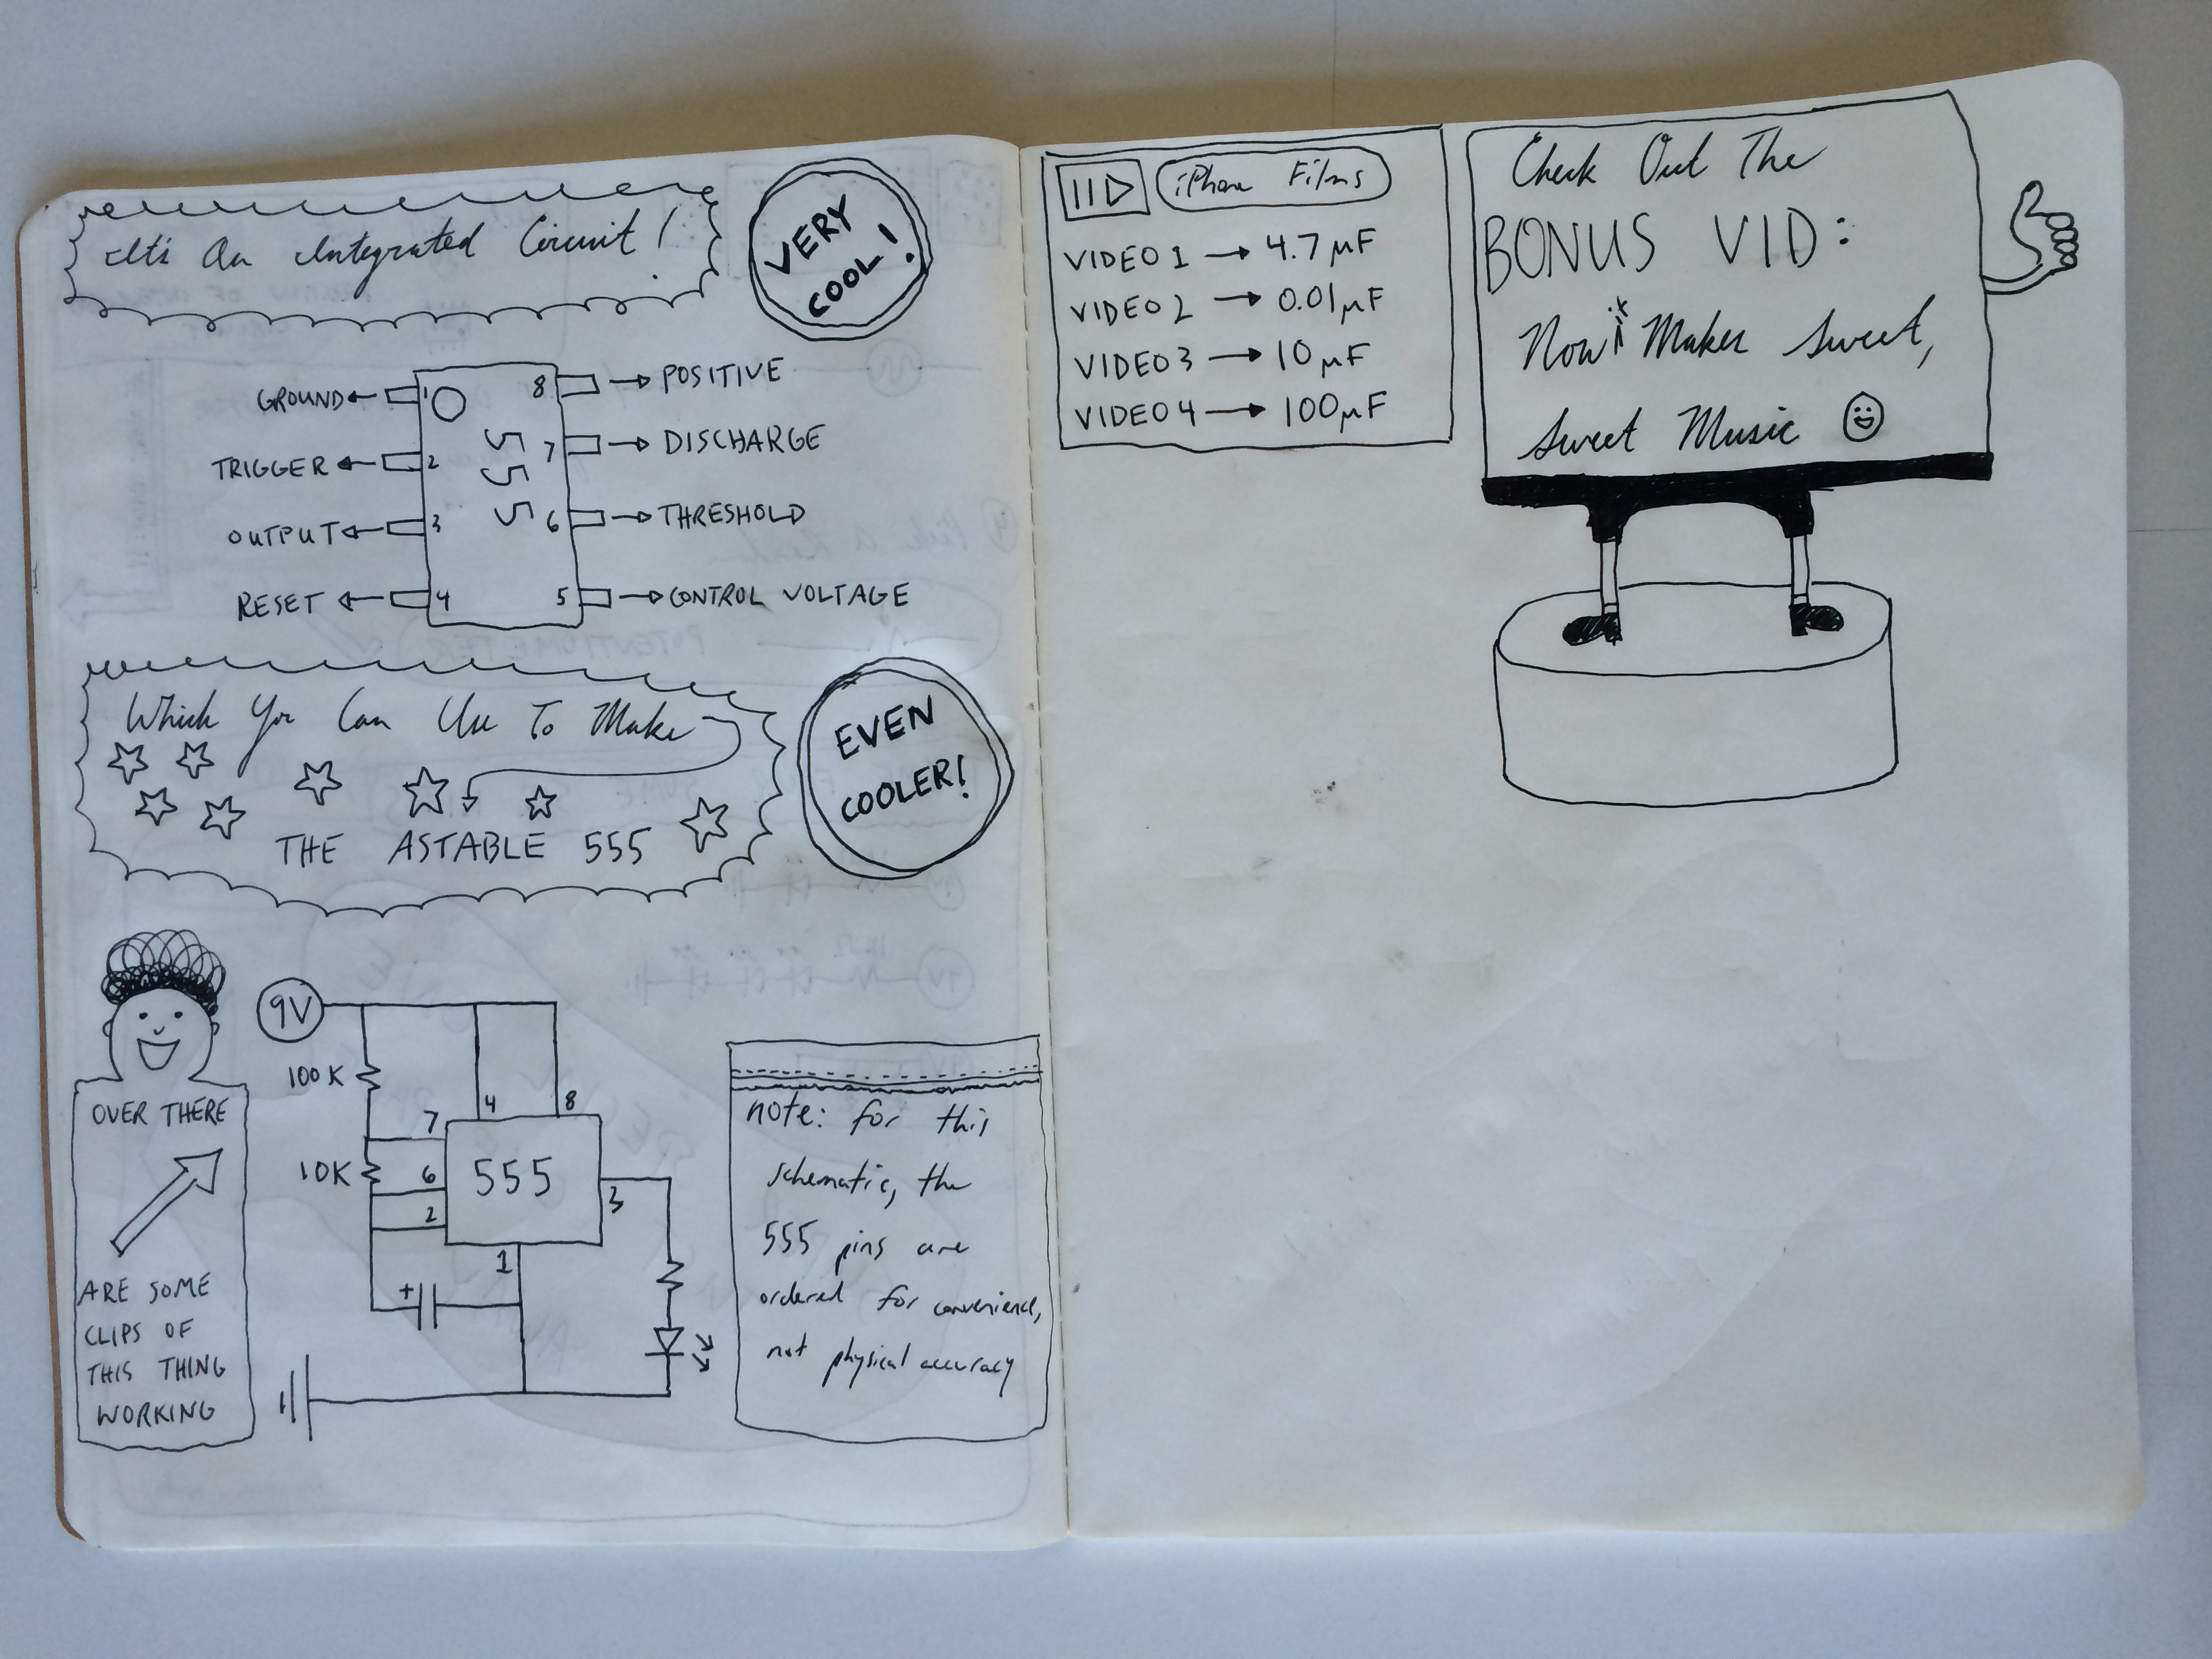 It's An Integrated Circuit!
VERY
COOL!
GROUND
1
8
POSITIVE
TRIGGER
2
7
DISCHARGE
555
OUTPUT
3
6
THRESHOLD
RESET
4
5
CONTROL VOLTAGE
Which You Can Use To Make
THE ASTABLE 555
EVEN
COOLER!
OVER THERE
ARE SOME
CLIPS OF
THIS THING
WORKING
9V
100K
4
8
7
10K
6
555
2
3
1
+
note: for this
schematic, the
555 pins are
ordered for convenience,
not physical accuracy
iPhone Films
VIDEO 1 → 4.7 µF
VIDEO 2 → 0.01µF
VIDEO 3 → 10 µF
VIDEO 4 → 100µF
Check Out The
BONUS VID:
Now it Makes Sweet,
Sweet Music